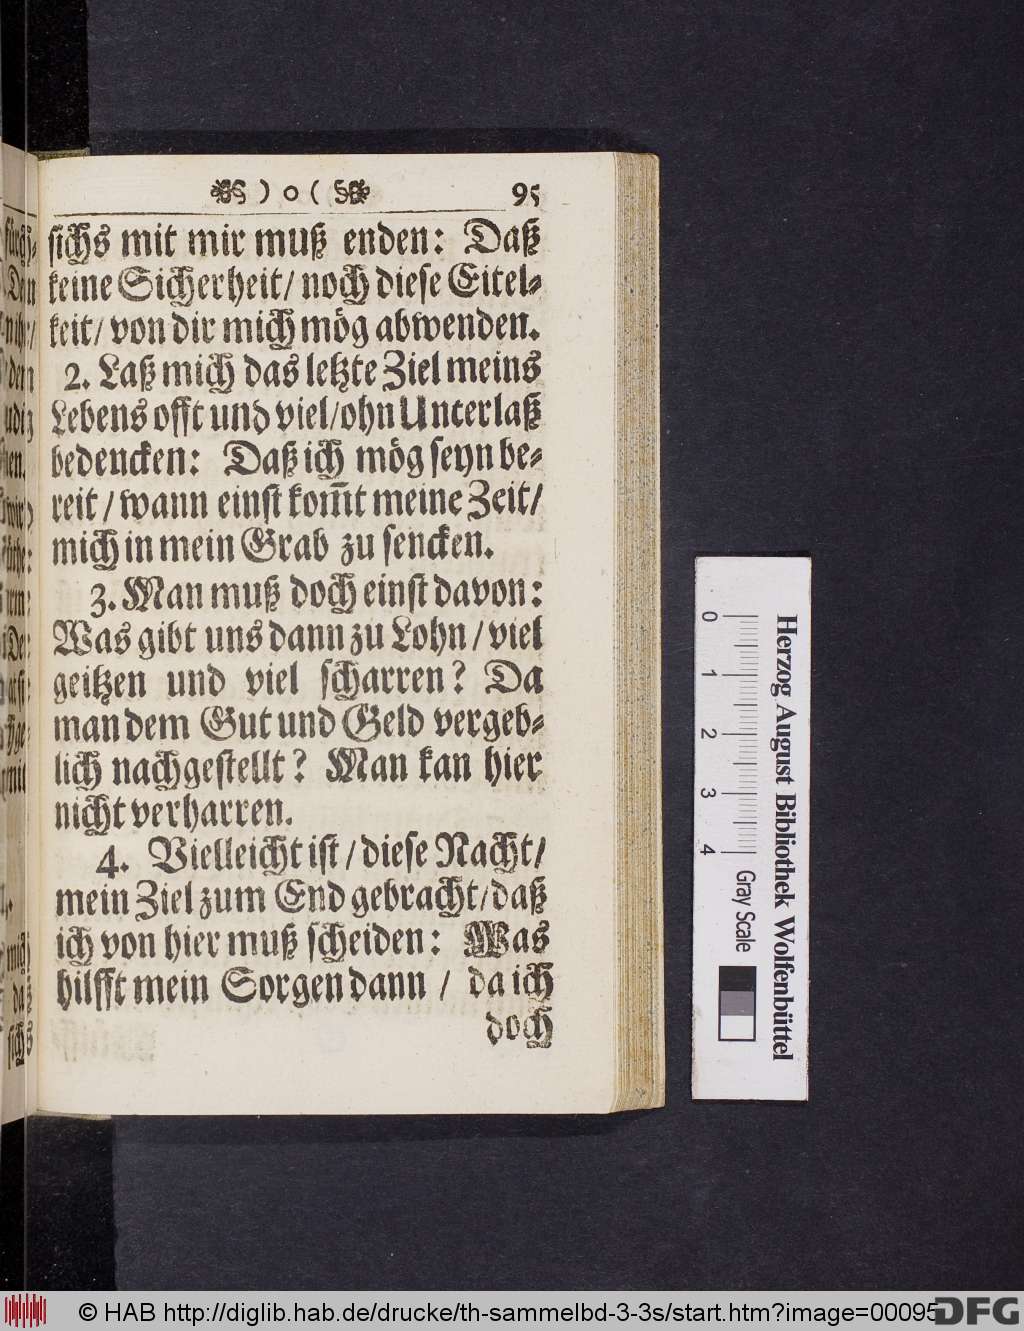 ) o ( 95
sichs mit mir muß enden: Daß
keine Sicherheit/ noch diese Eitel-
keit/ von dir mich mög abwenden.
2. Laß mich das letzte Ziel meins
Lebens offt und viel/ohn Unterlaß
bedencken: Daß ich mög seyn be-
reit / wann einst kom̃t meine Zeit/
mich in mein Grab zu sencken.
3. Man muß doch einst davon:
Was gibt uns dann zu Lohn / viel
geitzen und viel scharren? Da
man dem Gut und Geld vergeb-
lich nachgestellt? Man kan hier
nicht verharren.
4. Vielleicht ist / diese Nacht/
mein Ziel zum End gebracht/daß
ich von hier muß scheiden: Was
hilfft mein Sorgen dann / da ich
doch
Herzog August Bibliothek Wolfenbüttel
0 1 2 3 4
Gray Scale
© HAB http://diglib.hab.de/drucke/th-sammelbd-3-3s/start.htm?image=00095
DFG